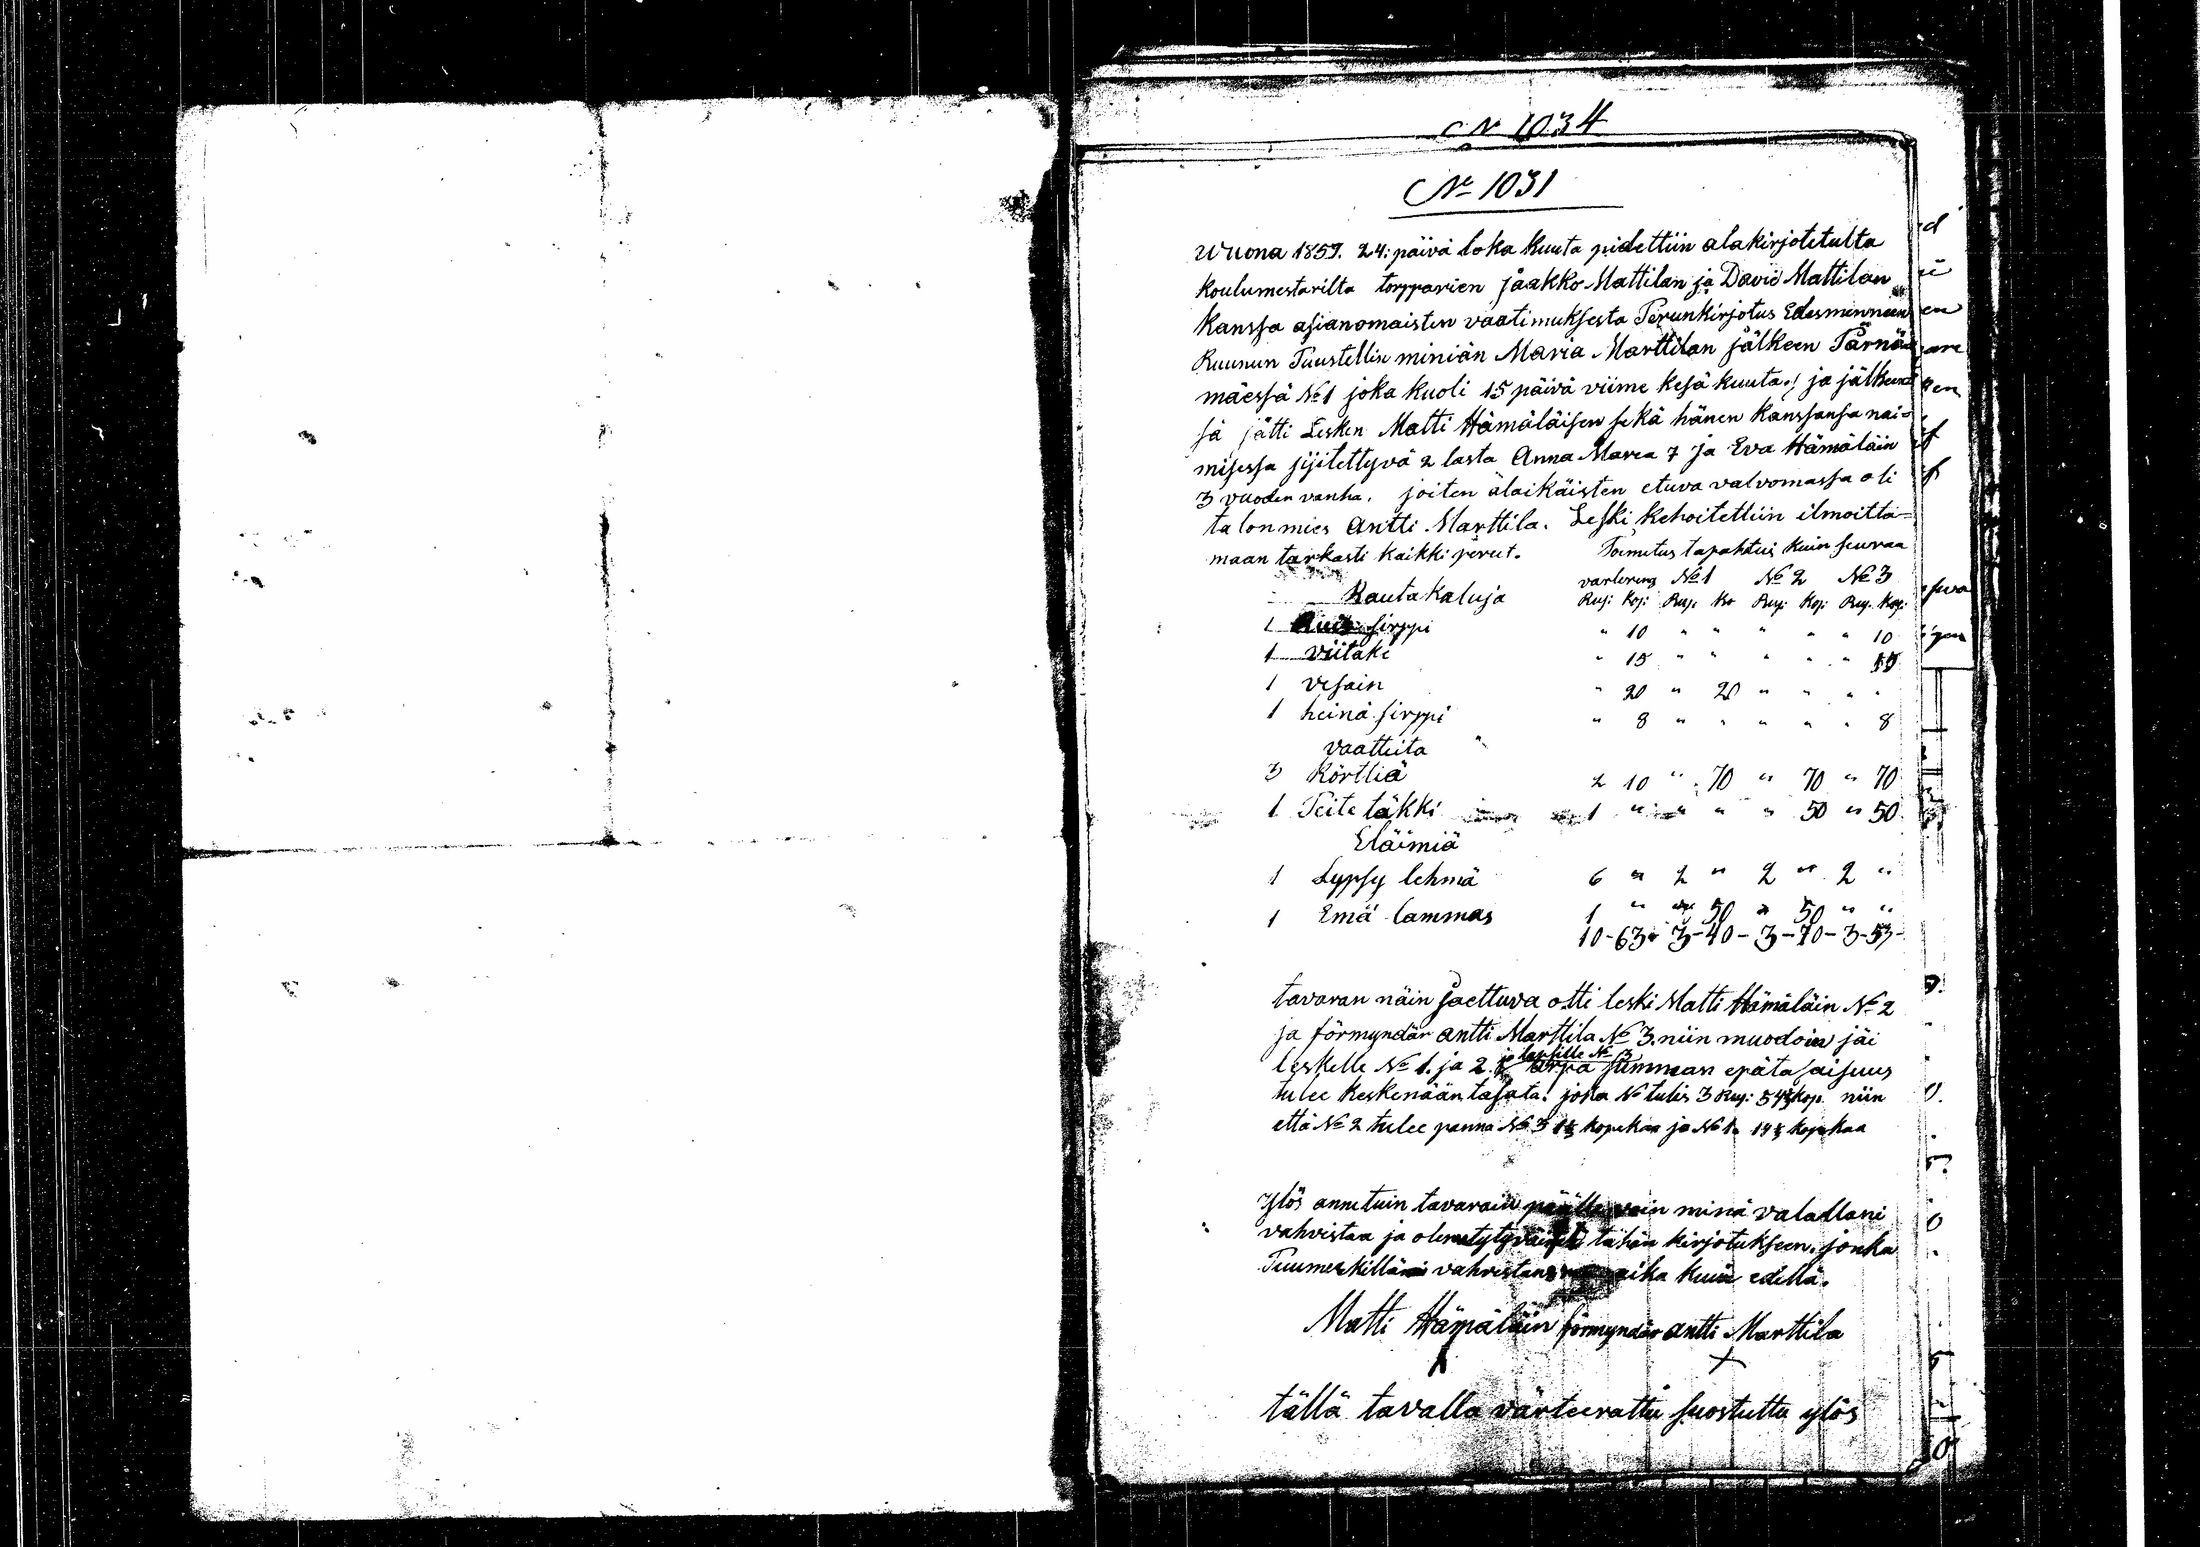 No 1034
No 1031
Wuona 1859. 24: päivä loka kuuta pidettiin alakirjotetulta
koulumestarilta torpparien Jaakko Mattilan ja David Mattilan
kanssa asianomaisten vaatimuksesta Perunkirjotus Edesmenneen
Ruunun Tuustellin miniän Maria Marttilan jälkeen Pärnä
mäessä No 1 joka kuoli 15 päivä viime kesä kuuta, ja jälkeen
sä jätti Lesken Matti Hämäläisen sekä hänen kanssansa nai=
misessa sijitettyvä 2 lasta Anna Maria 7 ja Eva Hämäläin
3 vuoden vanha. joiten alaikäisten etuva valvomassa oli
talonmies Antti Marttila. Leski kehoitettiin ilmoitta=
maan tarkasti kaikki perut. Toimitus tapahtui kuin seuraa
varlering No 1 No 2 No 3
Rautakaluja Rup: Kop: Rup: Ko Rup: Kop: Rup. Kop:
1 sirppi " 10 " " " " " 10
1 viitake " 15 " " " " " 15
1 vesain " 20 " 20 " " " "
1 heinä sirppi " 8 " " " " " 8
vaatteita
3 Körttiä 2 10 " 70 " 70 " 70
1 Peite täkki 1 " " " " 50 " 50
Eläimiä
1 Lypsy lehmä 6 " 2 " 2 " 2 "
1 Emä lammas 1 " " 50 " 50 " "
10-63 - 3-40 - 3-70 - 3-53-
tavaran näin jaettuva otti leski Matti Hämäläin No 2
ja förmyndär antti Marttila No 3. niin muodoin jäi
leskelle No 1. ja 2. ja lapsille No 3 arpa summan epätasaisuus
tulee keskenään tasata. joka No tulis 3 Rup: kop. niin
että No 2 tulee panna No 3 kopekaa ja No 1. kopekaa
Ylös annetuin tavarain päälle voin minä valallani
vahvistaa ja olen tähän kirjotukseen. jonka
Puumerkilläni aika kuin edellä.
Matti Hämäläin förmyndär antti Marttila
tällä tavalla värteerattu suostuttu ylös